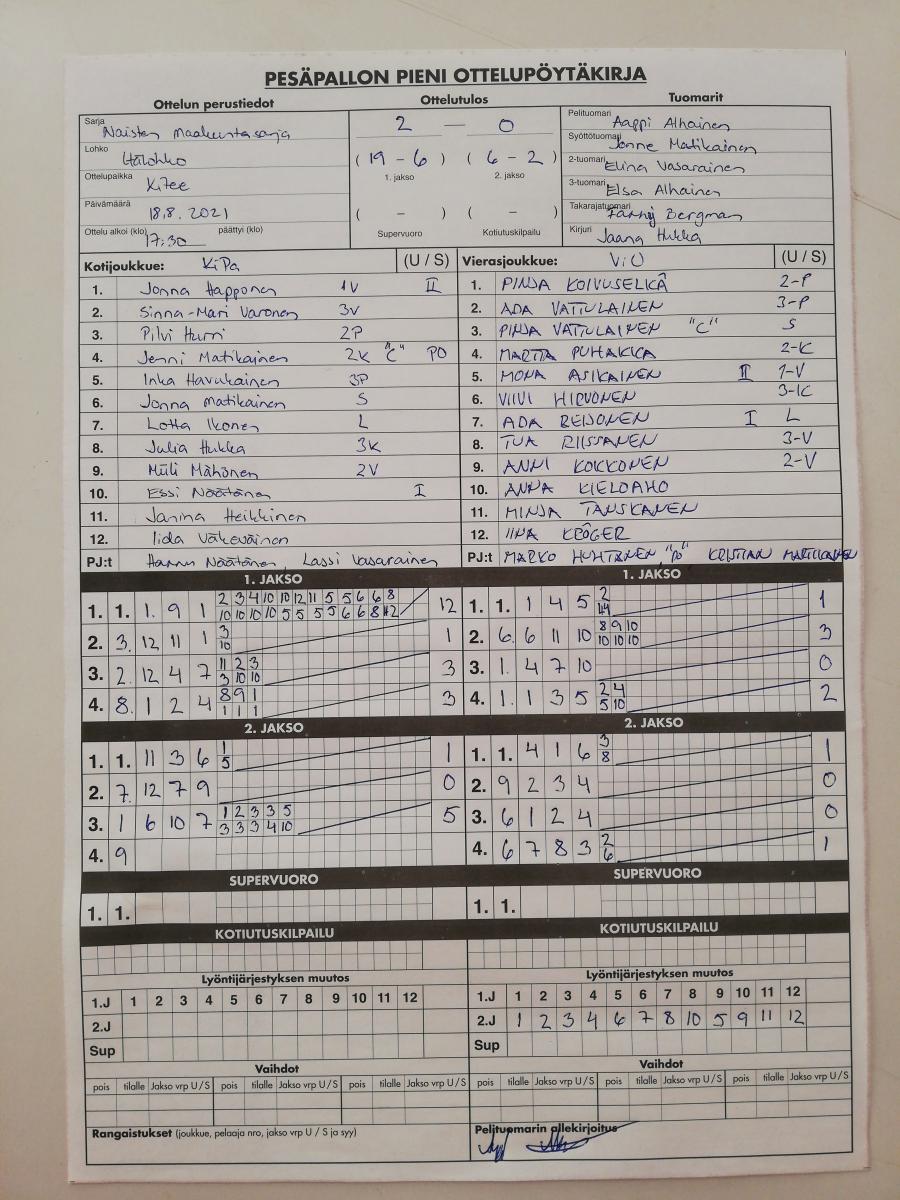 PESÄPALLON PIENI OTTELUPÖYTÄKIRJA
Ottelun perustiedot Ottelutulos Tuomarit
Sarja Naisten maakuntasarja
Lohko Itälohko
Ottelupaikka Kitee
Päivämäärä 18.8.2021
Ottelu alkoi (klo) 17:30 päättyi (klo)
2 — 0
( 19 - 6 ) ( 6 - 2 )
1. jakso 2. jakso
( - ) ( - )
Supervuoro Kotiutuskilpailu
Pelituomari Aappi Alhainen
Syöttötuomari Jenne Matikainen
2-tuomari Elina Vasarainen
3-tuomari Elsa Alhainen
Takarajatuomari Fanny Bergman
Kirjuri Jaana Hukka
Kotijoukkue: KiPa (U / S)
1. Jonna Happonen 1V II
2. Sinna-Mari Varonen 3V
3. Pilvi Hurri 2P
4. Jenni Matikainen 2K "C" PO
5. Inka Havukainen 3P
6. Jonna Matikainen S
7. Lotta Ikonen L
8. Julia Hukka 3K
9. Miili Mähönen 2V
10. Essi Näätänen I
11. Janina Heikkinen
12. Iida Väkeväinen
PJ:t Hannu Näätänen, Lassi Vasarainen
Vierasjoukkue: ViU (U / S)
1. PINJA KOIVUSELKÄ 2-P
2. ADA VATTULAINEN 3-P
3. PINJA VATTULAINEN "C" S
4. MARTTA PUHAKKA 2-K
5. MONA ASIKAINEN II 1-V
6. VIIVI HIRVONEN 3-K
7. ADA REIJONEN I L
8. TUA RIISSANEN 3-V
9. ANNI KOKKONEN 2-V
10. ANNA KIELOAHO
11. MINJA TANSKANEN
12. IINA KRÖGER
PJ:t MARKO HUHTANEN "PO" KRISTIAN MARTIKAINEN
1. JAKSO
1. 1. 1. 9 1 2 3 4 10 10 12 11 5 5 6 6 8 12
10 10 10 10 5 5 5 5 6 6 8 12
2. 3. 12 11 1 3 1
10
3. 2. 12 4 7 11 2 3 3
3 10 10
4. 8. 1 2 4 8 9 1 3
1 1 1
1. JAKSO
1. 1. 1 4 5 2 1
2. 6. 6 11 10 8 9 10 3
10 10 10
3. 1. 4 7 10 0
4. 1. 1 3 5 2 4 2
5 10
2. JAKSO
1. 1. 11 3 6 1 1
5
2. 7. 12 7 9 0
3. 1 6 10 7 1 2 3 3 5 5
3 3 3 4 10
4. 9
2. JAKSO
1. 1. 4 1 6 3 1
8
2. 9 2 3 4 0
3. 6 1 2 4 0
4. 6 7 8 3 2 1
6
SUPERVUORO SUPERVUORO
1. 1. 1. 1.
KOTIUTUSKILPAILU KOTIUTUSKILPAILU
Lyöntijärjestyksen muutos
1.J 1 2 3 4 5 6 7 8 9 10 11 12
2.J
Sup
Lyöntijärjestyksen muutos
1.J 1 2 3 4 5 6 7 8 9 10 11 12
2.J 1 2 3 4 6 7 8 10 5 9 11 12
Sup
Vaihdot Vaihdot
pois tilalle Jakso vrp U / S pois tilalle Jakso vrp U / S pois tilalle Jakso vrp U / S
pois tilalle Jakso vrp U / S pois tilalle Jakso vrp U / S pois tilalle Jakso vrp U / S
Rangaistukset (joukkue, pelaaja nro, jakso vrp U / S ja syy)
Pelituomarin allekirjoitus